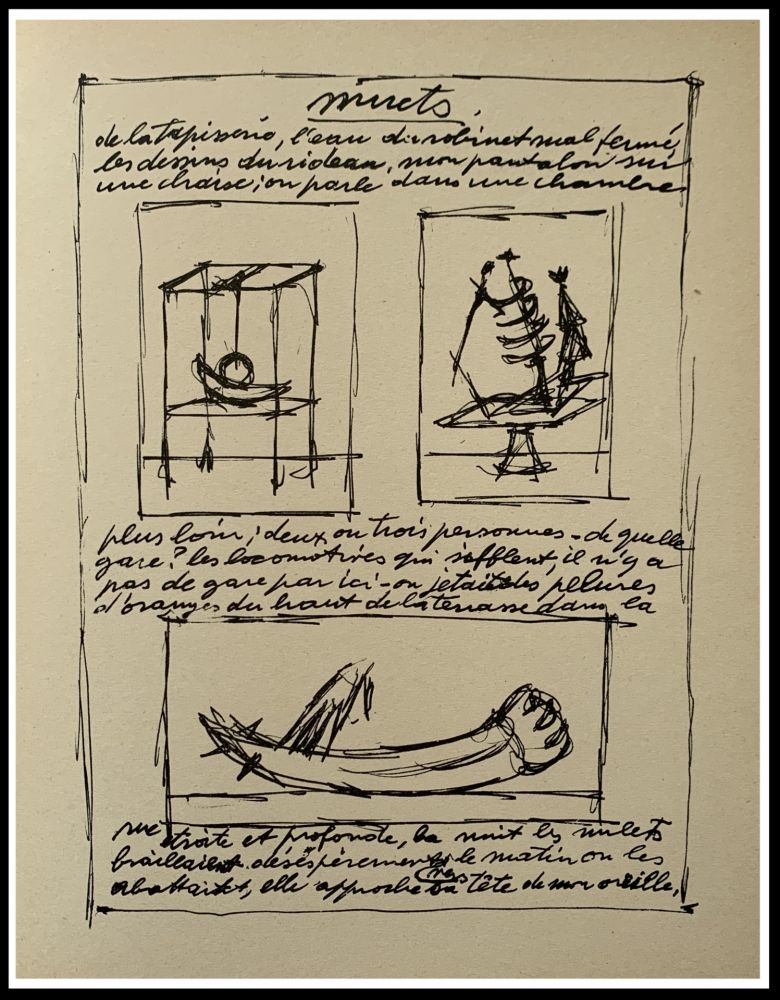 muets.
de la tapisserie, l'eau du robinet mal fermé,
les dessins du rideau, mon pantalon sur
une chaise; on parle dans une chambre
plus loin; deux ou trois personnes - de quelle
gare? les locomotives qui sifflent, il n'y a
pas de gare par ici - on jetait des pelures
d'oranges du haut de la terrasse dans la
rue étroite et profonde, la nuit les mulets
braillaient désespérement, vers le matin on les
abattait, elle approche sa tête de mon oreille,